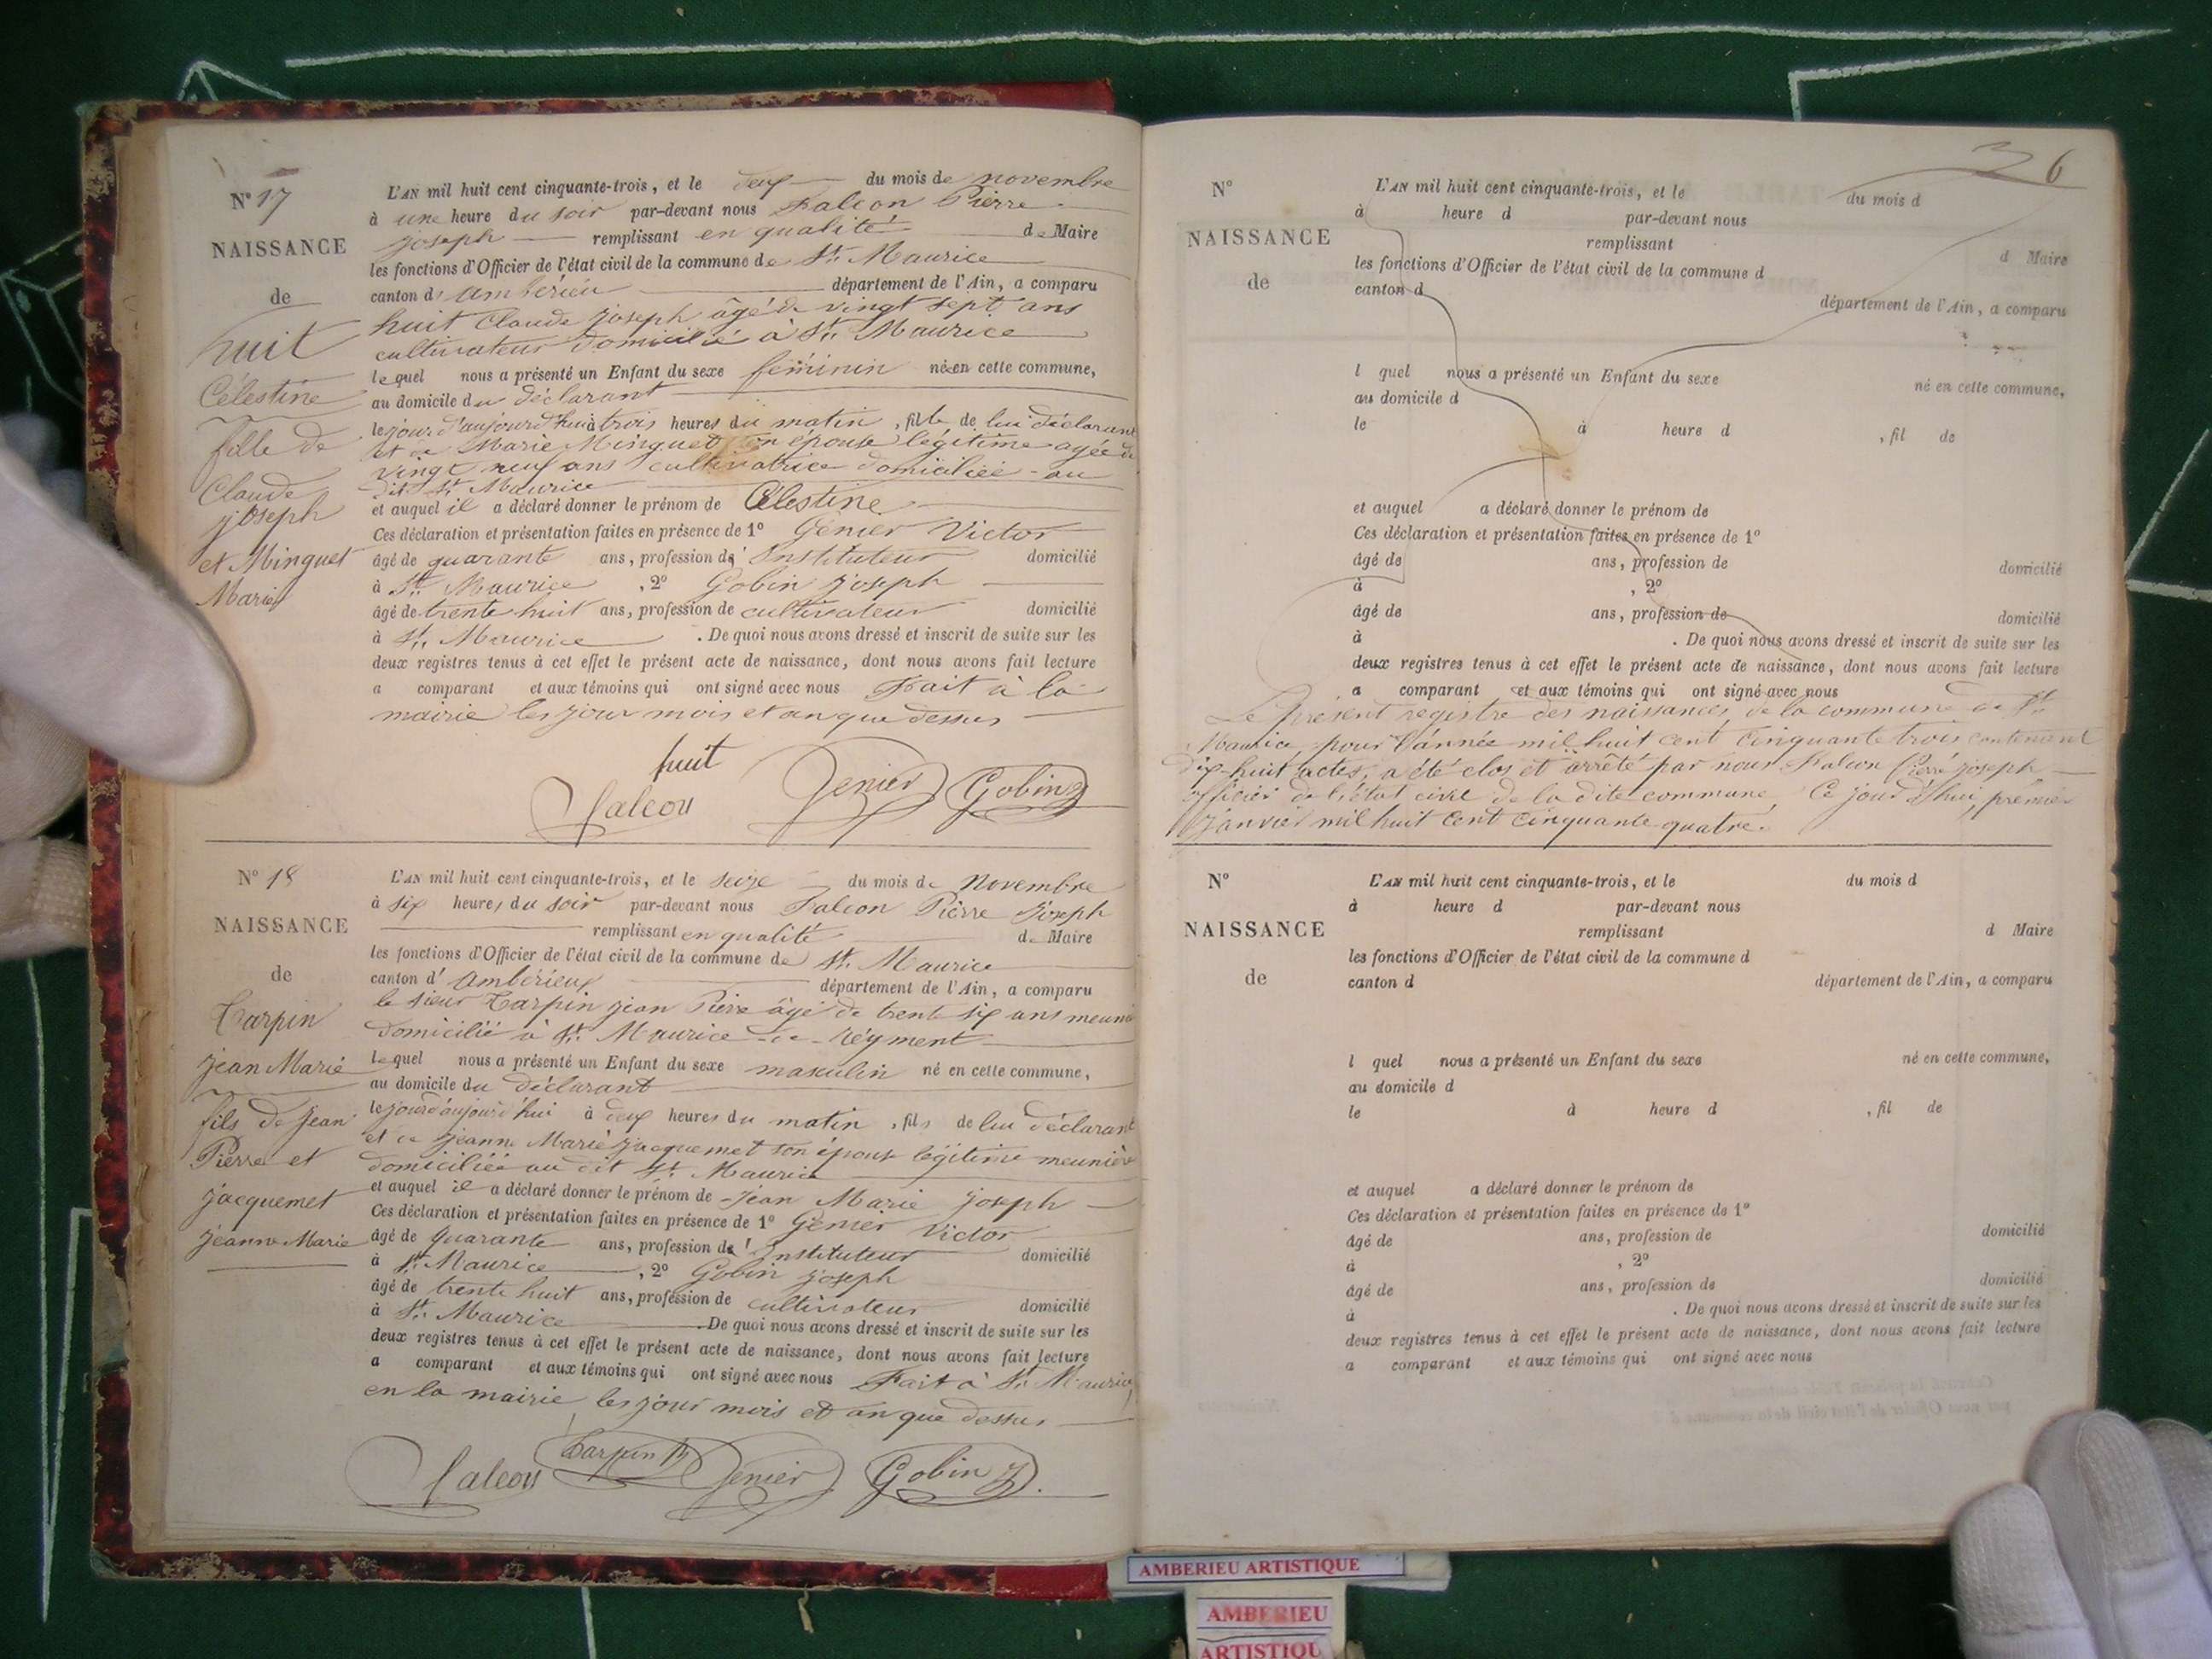 N° 17
NAISSANCE
de
huit
Célestine
fille de
Claude
joseph
et Minguet
Marie
L'AN mil huit cent cinquante-trois, et le deux du mois de novembre
à une heure du soir par-devant nous Falcon Pierre
joseph remplissant en qualité de Maire
les fonctions d'Officier de l'état civil de la commune de St. Maurice
canton d' Ambérieu département de l'Ain, a comparu
huit Claude joseph âgé de vingt sept ans
cultivateur domicilié à St. Maurice
lequel nous a présenté un Enfant du sexe féminin née en cette commune,
au domicile du déclarant
le jour d'aujourd'hui à trois heures du matin, fille de lui déclarant
et de Marie Minguet son épouse légitime agée de
vingt neuf ans cultivatrice domiciliée au
dit St. Maurice
et auquel il a déclaré donner le prénom de Célestine
Ces déclaration et présentation faites en présence de 1° Génier Victor
âgé de quarante ans, profession d' Instituteur domicilié
à St. Maurice, 2° Gobin joseph
âgé de trente huit ans, profession de cultivateur domicilié
à St. Maurice. De quoi nous avons dressé et inscrit de suite sur les
deux registres tenus à cet effet le présent acte de naissance, dont nous avons fait lecture
a comparant et aux témoins qui ont signé avec nous Fait à la
mairie les jour mois et an que dessus
huit
Falcon Genier Gobin J
N° 18
NAISSANCE
de
Tarpin
jean Marie
fils de jean
Pierre et
jacquemet
jeanne Marie
L'AN mil huit cent cinquante-trois, et le seize du mois de Novembre
à six heures du soir par-devant nous Falcon Pierre joseph
remplissant en qualité de Maire
les fonctions d'Officier de l'état civil de la commune de St. Maurice
canton d' Ambérieux département de l'Ain, a comparu
le sieur Tarpin jean Pierre âgé de trente six ans meunier
domicilié à St. Maurice de Réyment
Lequel nous a présenté un Enfant du sexe masculin né en cette commune,
au domicile du déclarant
le jour d'aujourd'hui à deux heures du matin, fils de lui déclarant
et de jeanne Marie jacquemet son épouse légitime meunière
domiciliée au dit St. Maurice
et auquel il a déclaré donner le prénom de jean Marie joseph
Ces déclaration et présentation faites en présence de 1° Génier Victor
âgé de quarante ans, profession d' Instituteur domicilié
à St. Maurice, 2° Gobin joseph
âgé de trente huit ans, profession de cultivateur domicilié
à St. Maurice. De quoi nous avons dressé et inscrit de suite sur les
deux registres tenus à cet effet le présent acte de naissance, dont nous avons fait lecture
a comparant et aux témoins qui ont signé avec nous Fait à St. Maurice
en la mairie les jour mois et an que dessus
Falcon Tarpin Genier Gobin J.
36
N°
NAISSANCE
de
L'AN mil huit cent cinquante-trois, et le du mois d
à heure d par-devant nous
remplissant d Maire
les fonctions d'Officier de l'état civil de la commune d
canton d département de l'Ain, a comparu
l quel nous a présenté un Enfant du sexe né en cette commune,
au domicile d
le à heure d , fil de
et auquel a déclaré donner le prénom de
Ces déclaration et présentation faites en présence de 1°
âgé de ans, profession de domicilié
à , 2°
âgé de ans, profession de domicilié
à . De quoi nous avons dressé et inscrit de suite sur les
deux registres tenus à cet effet le présent acte de naissance, dont nous avons fait lecture
a comparant et aux témoins qui ont signé avec nous
Le présent registre des naissances de la commune de St.
Maurice, pour l'année mil huit cent cinquante trois contenant
dix-huit actes, a été clos et arrêté par nous Falcon Pierre joseph
officier de l'état civil de la dite commune, Ce jour d'hui premier
janvier mil huit cent cinquante quatre.
N°
NAISSANCE
de
L'AN mil huit cent cinquante-trois, et le du mois d
à heure d par-devant nous
remplissant d Maire
les fonctions d'Officier de l'état civil de la commune d
canton d département de l'Ain, a comparu
l quel nous a présenté un Enfant du sexe né en cette commune,
au domicile d
le à heure d , fil de
et auquel a déclaré donner le prénom de
Ces déclaration et présentation faites en présence de 1°
âgé de ans, profession de domicilié
à , 2°
âgé de ans, profession de domicilié
à . De quoi nous avons dressé et inscrit de suite sur les
deux registres tenus à cet effet le présent acte de naissance, dont nous avons fait lecture
a comparant et aux témoins qui ont signé avec nous
AMBERIEU ARTISTIQUE
AMBERIEU
ARTISTIQU